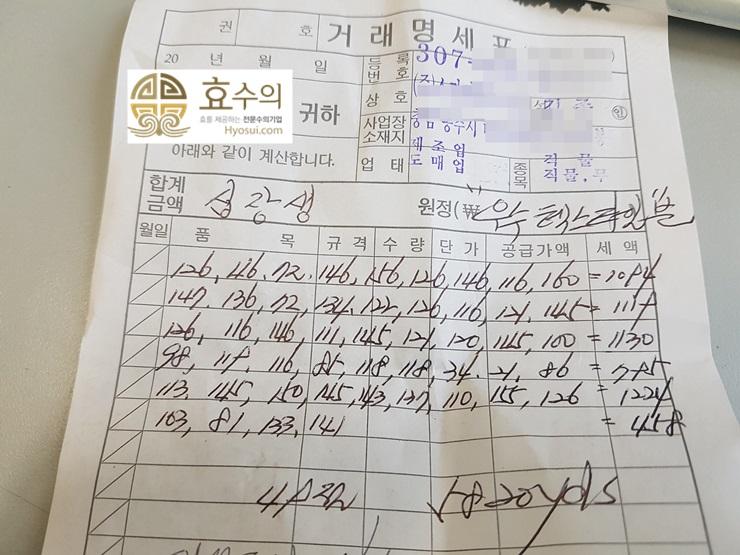 권 호 거래명세표
20 년 월 일
등록번호 307-
효수의
효를 제공하는 전문수의기업
Hyosui.com
귀하
상호 (주)
인
사업장소재지 충남 공주시
아래와 같이 계산합니다.
업태 제조업 도매업 종목 직물 직물,
합계금액 원정(₩
월일 품목 규격 수량 단가 공급가액 세액
126, 46, 72, 146, 156, 126, 146, 116, 160 = 1094
147, 136, 72, 134, 122, 126, 116, 121, 145 = 1119
126, 116, 146, 111, 145, 121, 120, 145, 100 = 1130
98, 119, 116, 85, 118, 118, 34, 21, 86 = 795
113, 145, 150, 145, 143, 137, 110, 155, 126 = 1224
103, 81, 133, 141 = 458
49 5820yds